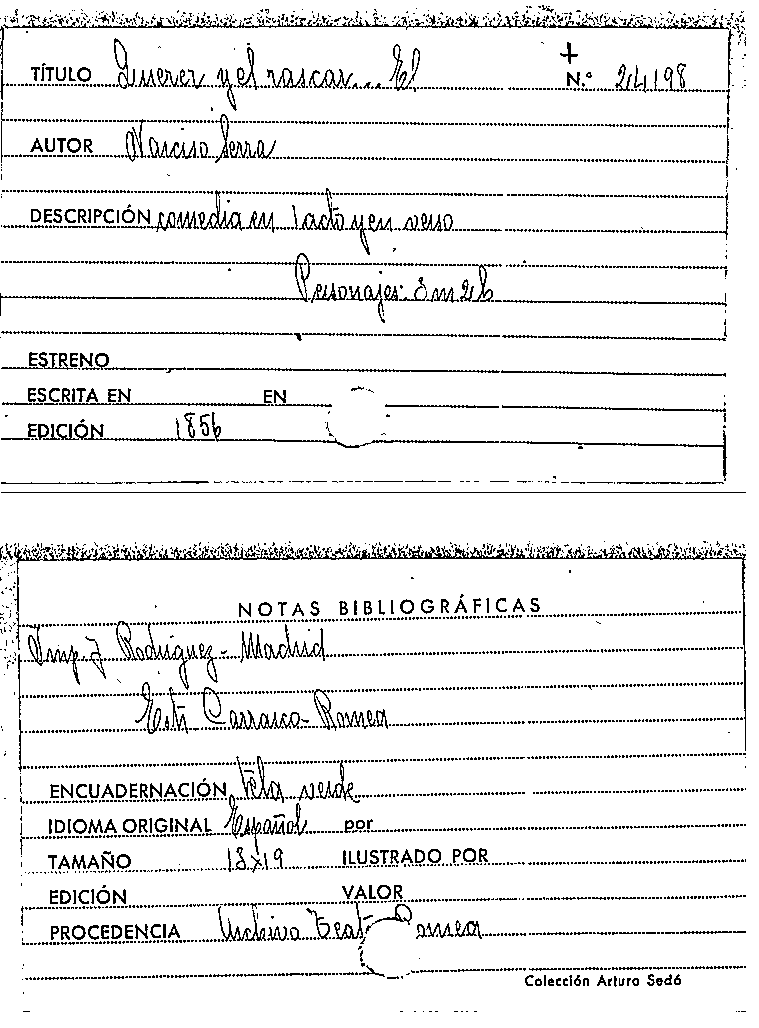 TÍTULO Querer y el rascar... El
+
N.º 24198
AUTOR Narciso Serra
DESCRIPCIÓN comedia en 1 acto y en verso
Personajes: 3 m 2 h
ESTRENO
ESCRITA EN EN
EDICIÓN 1856
NOTAS BIBLIOGRÁFICAS
Imp. J. Rodríguez - Madrid
Estr. Carrasco - Romea
ENCUADERNACIÓN tela verde
IDIOMA ORIGINAL Español por
TAMAÑO 13x19 ILUSTRADO POR
EDICIÓN VALOR
PROCEDENCIA Archivo Teat Romea
Colección Arturo Sedó